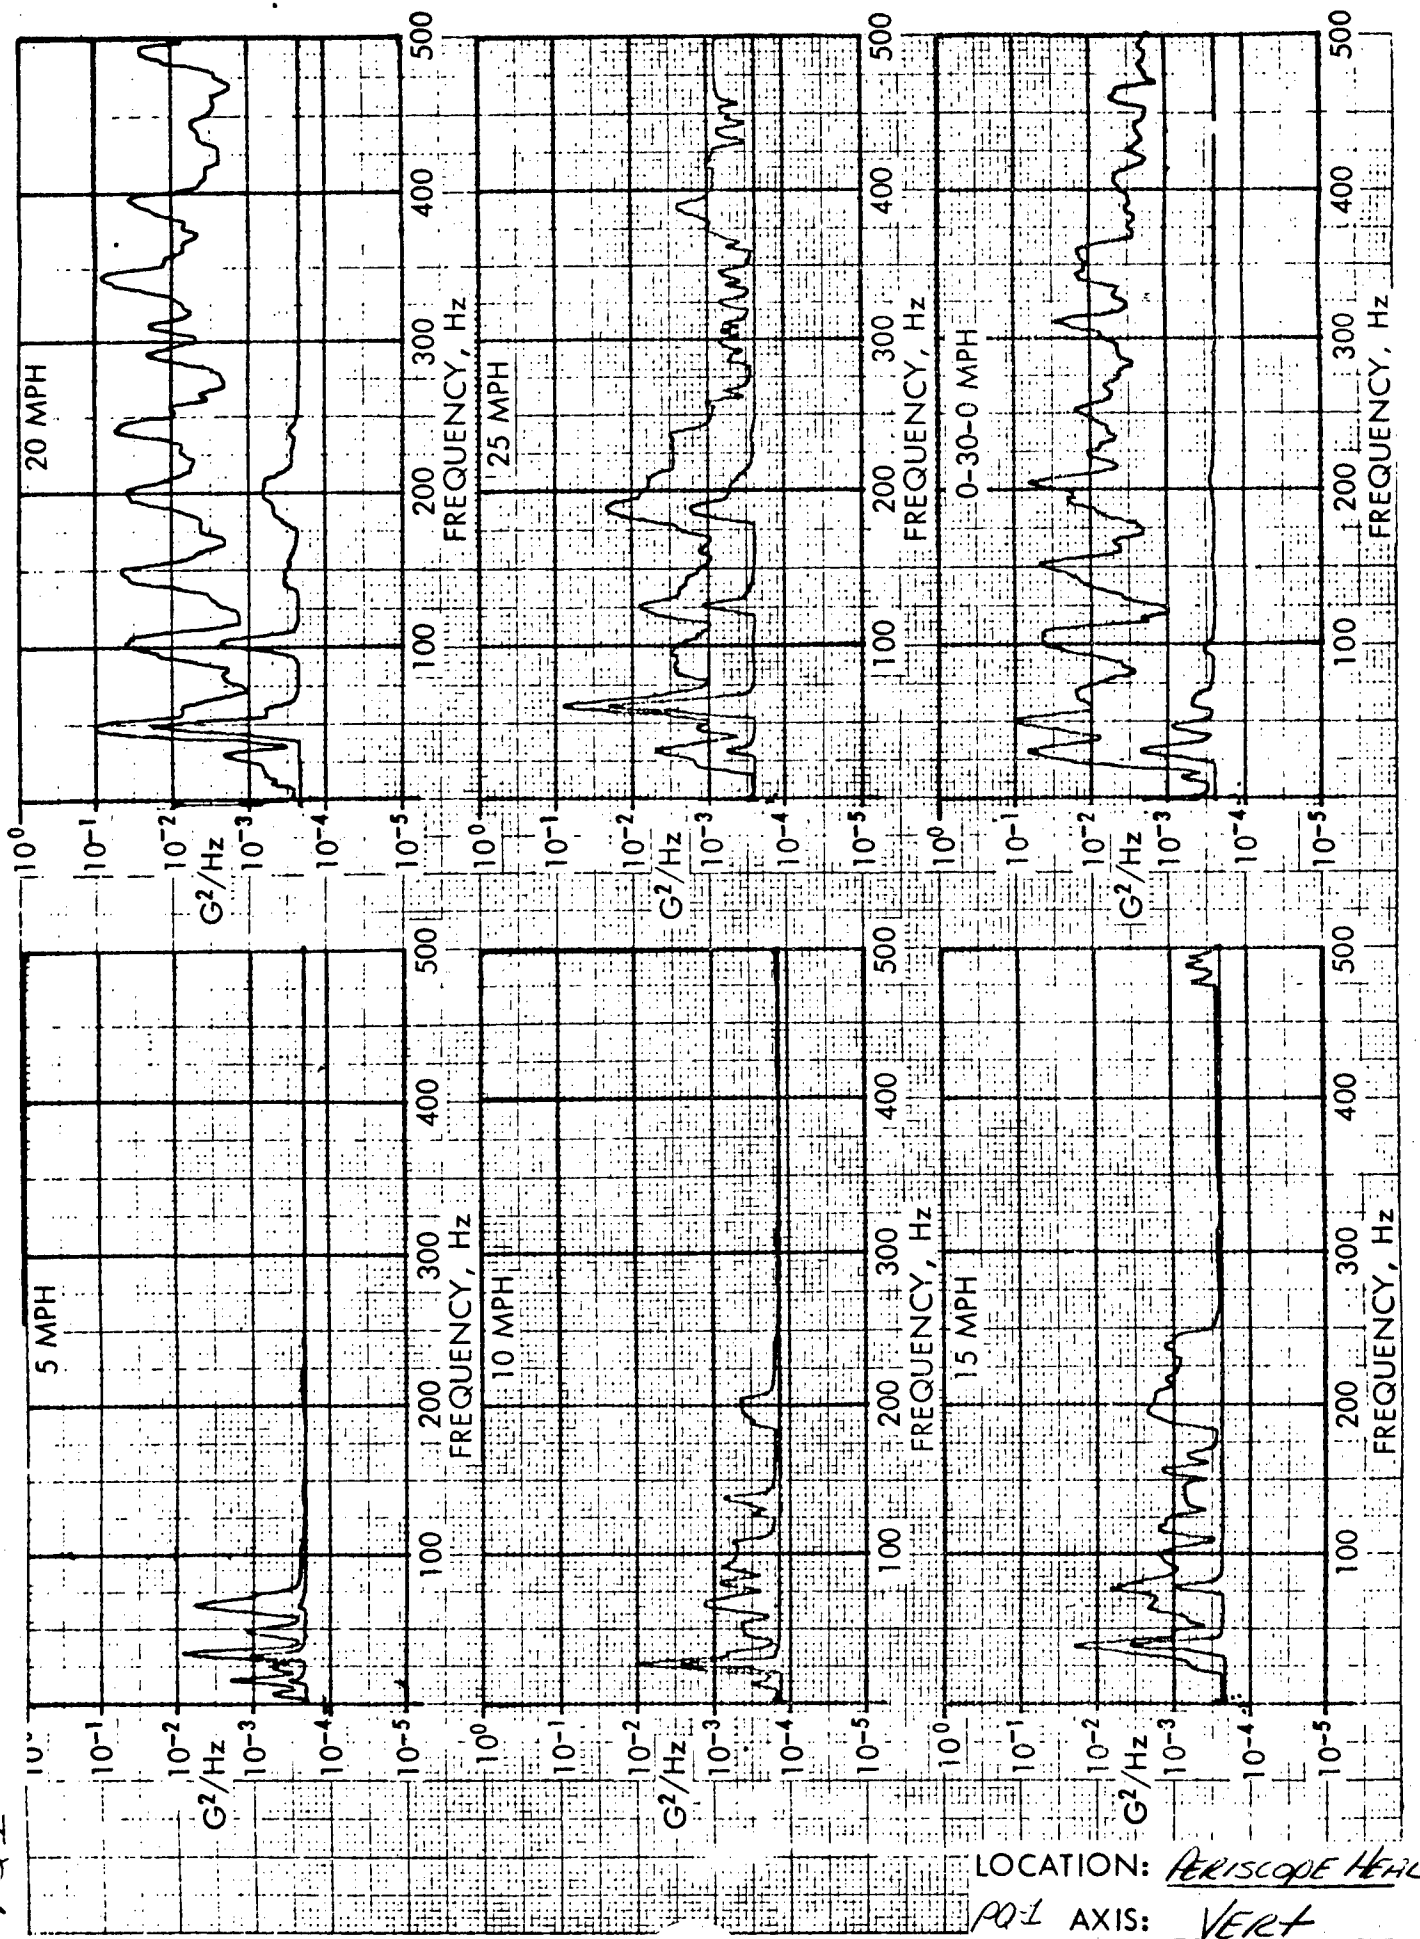 5 MPH
10⁻¹
10⁻²
10⁻³
10⁻⁴
10⁻⁵
G²/Hz
100
200
300
400
500
FREQUENCY, Hz
10 MPH
10⁰
10⁻¹
10⁻²
10⁻³
10⁻⁴
10⁻⁵
G²/Hz
100
200
300
400
500
FREQUENCY, Hz
15 MPH
10⁰
10⁻¹
10⁻²
10⁻³
10⁻⁴
10⁻⁵
G²/Hz
100
200
300
400
500
FREQUENCY, Hz
20 MPH
10⁰
10⁻¹
10⁻²
10⁻³
10⁻⁴
10⁻⁵
G²/Hz
100
200
300
400
500
FREQUENCY, Hz
25 MPH
10⁰
10⁻¹
10⁻²
10⁻³
10⁻⁴
10⁻⁵
G²/Hz
100
200
300
400
500
FREQUENCY, Hz
0-30-0 MPH
10⁰
10⁻¹
10⁻²
10⁻³
10⁻⁴
10⁻⁵
G²/Hz
100
200
300
400
500
FREQUENCY, Hz
LOCATION: PERISCOPE
PQ-1 AXIS: VERT